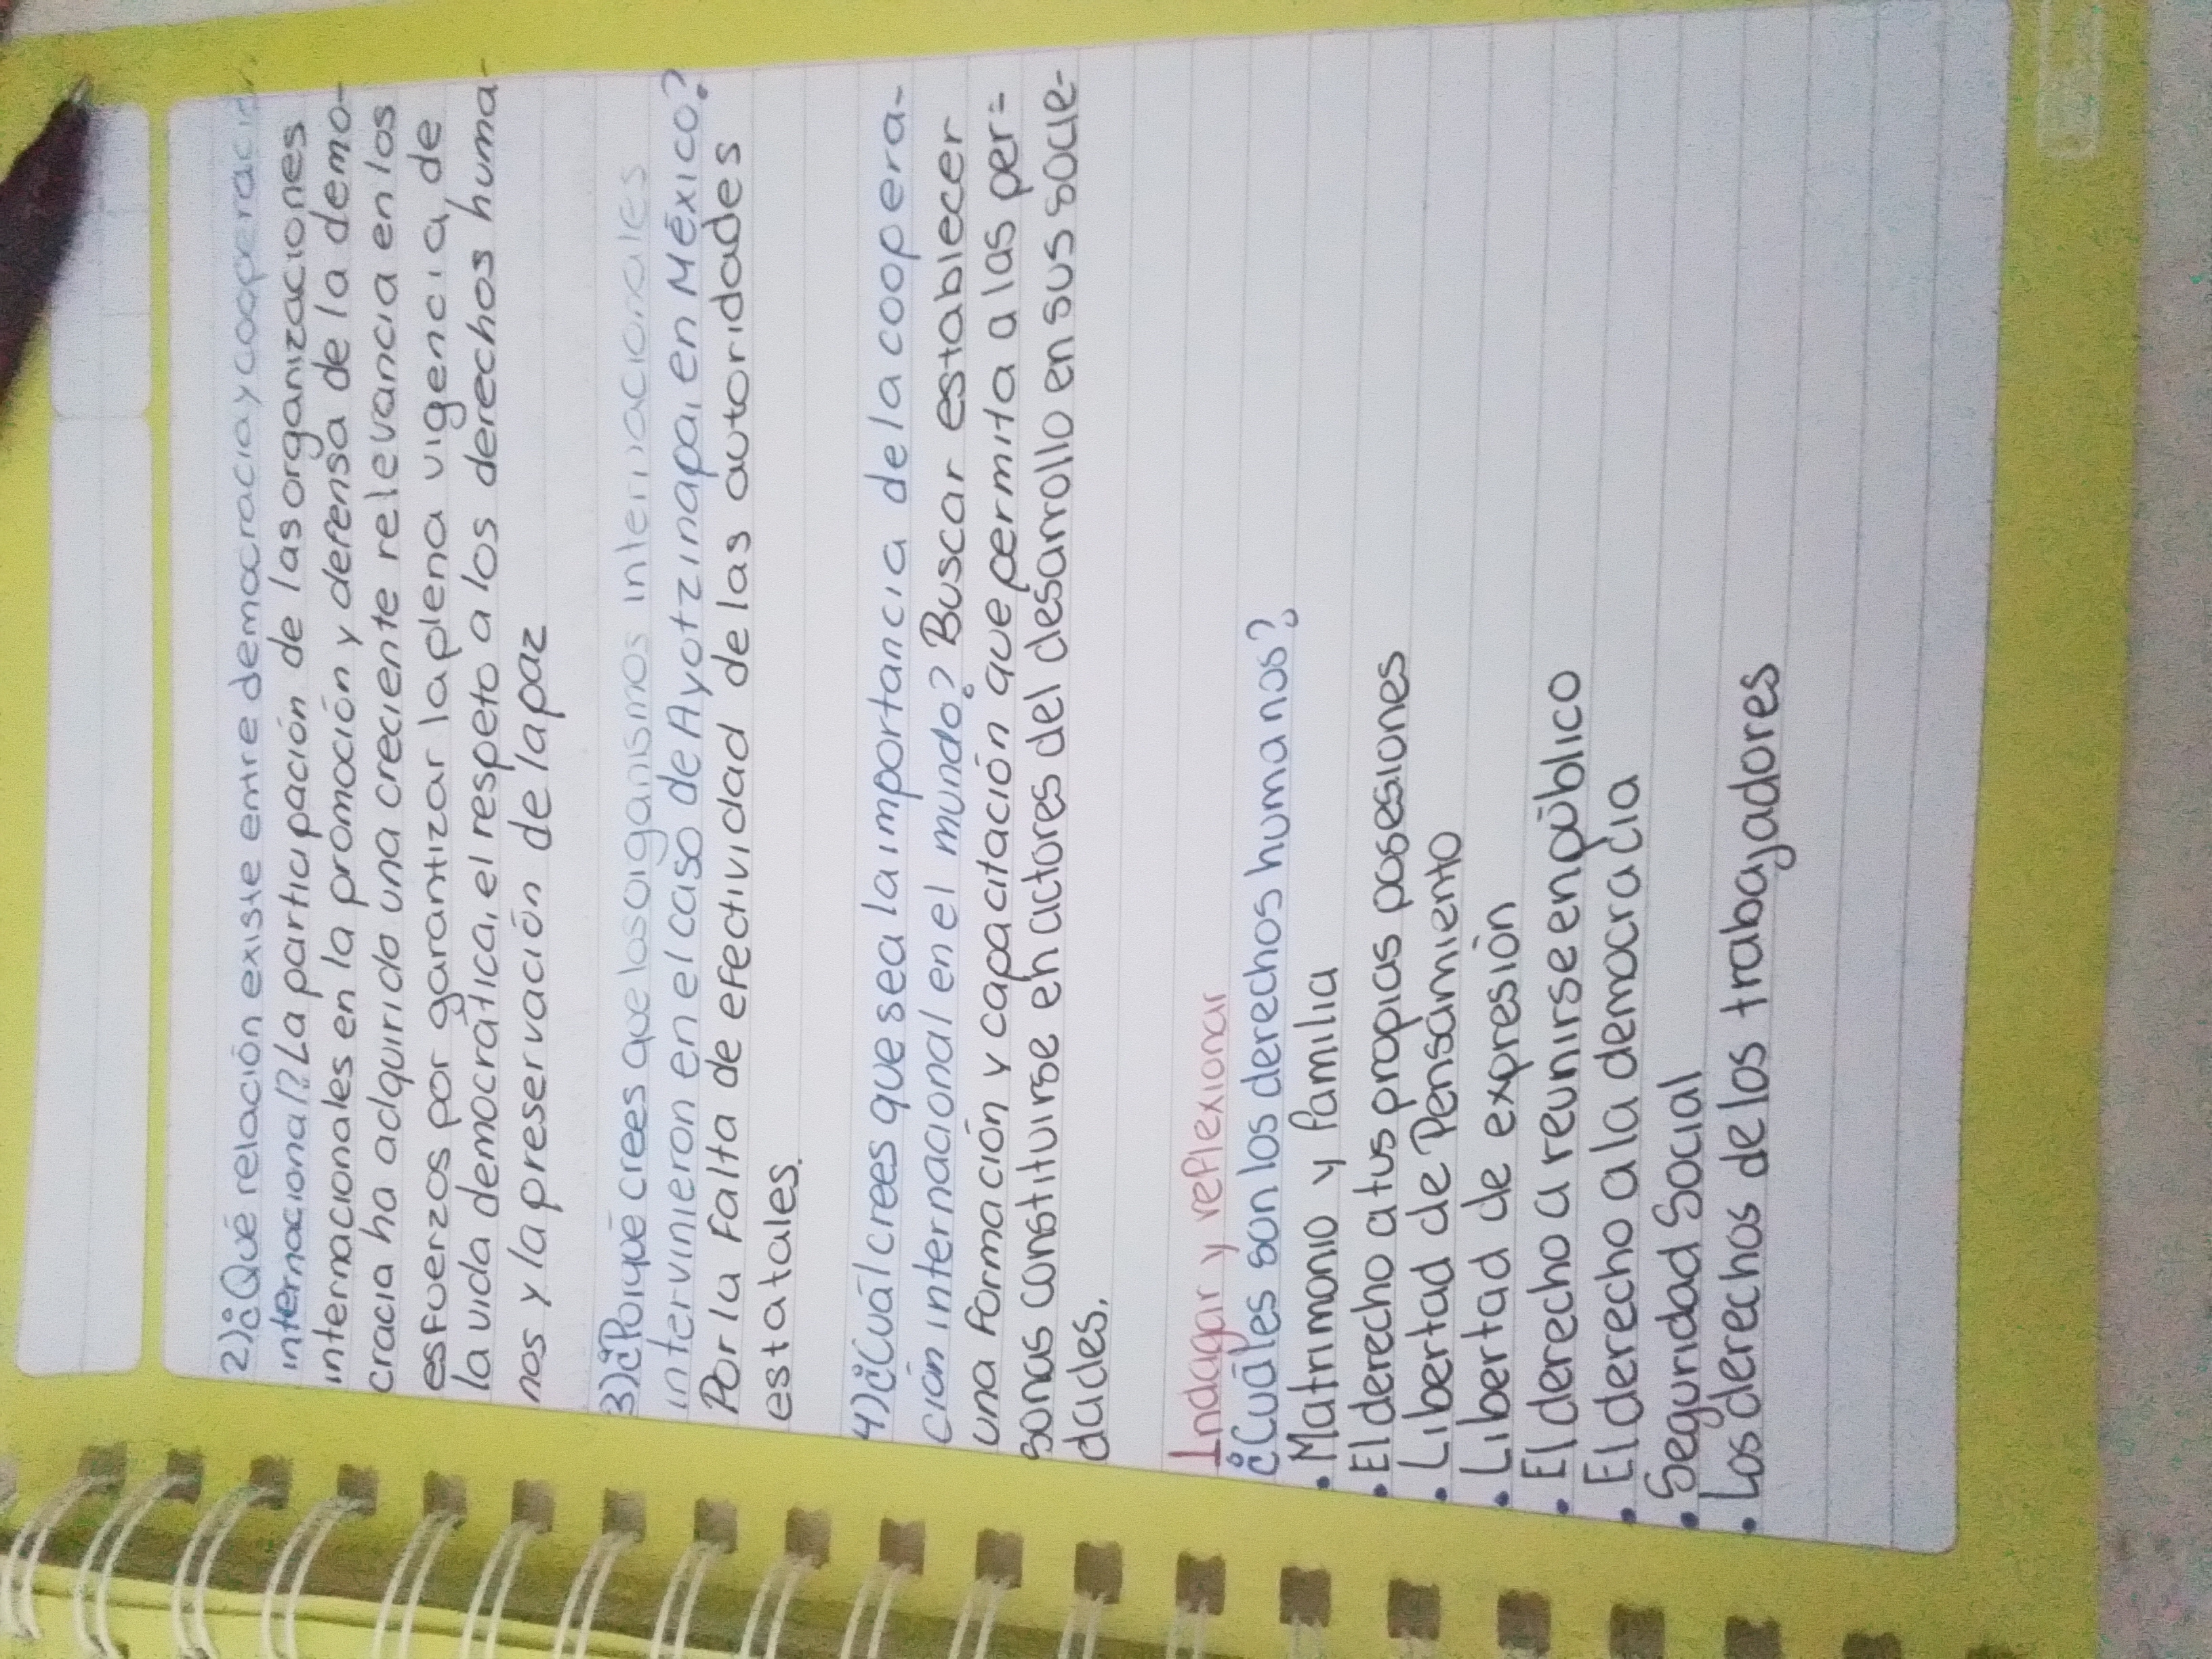 2)¿Qué relación existe entre democracia y cooperación
internacional? La participación de las organizaciones
internacionales en la promoción y defensa de la demo-
cracia ha adquirido una creciente relevancia en los
esfuerzos por garantizar la plena vigencia, de
la vida democrática, el respeto a los derechos huma-
nos y la preservación de la paz
3)¿Porqué crees que los organismos internacionales
intervinieron en el caso de Ayotzinapa, en México?
Por la falta de efectividad de las autoridades
estatales.
4)¿Cuál crees que sea la importancia de la coopera-
ción internacional en el mundo? Buscar establecer
una formación y capacitación que permita a las per-
sonas constituirse en actores del desarrollo en sus socie-
dades.
Indagar y reflexionar
¿Cuáles son los derechos humanos?
• Matrimonio y familia
• El derecho a tus propias posesiones
• Libertad de Pensamiento
• Libertad de expresión
• El derecho a reunirse en público
• El derecho a la democracia
• Seguridad Social
• Los derechos de los trabajadores